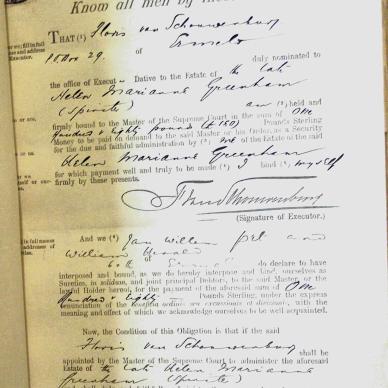 Know all men by these
THAT (¹) Floris van Schouwenburg
or we; fill in full
me and address
Executor.
P.O. Box 29. of Ermelo
duly nominated to
the office of Executor Dative to the Estate of the late
Helen Marianne Greenham
(Spinster) am (²) held and
m or are.
firmly bound to the Master of the Supreme Court in the sum of One
Hundred & eighty pounds (£180) Pounds Sterling
Money to be paid on demand to the said Master or his Order, as a Security
for the due and faithful administration by (³) me of the Estate of the said
e or us.
Helen Marianne Greenham
or we.
for which payment well and truly to be made (⁴) I bind (⁵) myself
firmly by these presents.
(Signature of Executor.)
in full names
addresses of
ties.
And we (⁶) Jan Willem and
William
both of do declare to have
interposed and bound, as we do hereby interpose and bind, ourselves as
Sureties, in solidum, and joint principal Debtors, to the said Master, or the
lawful Holder hereof, for the payment of the aforesaid sum of One
Hundred & eighty Pounds Sterling, under the express
renunciation of the
meaning and effect of which we acknowledge ourselves to be well acquainted.
Now, the Condition of this Obligation is that if the said
Floris van Schouwenburg shall be
appointed by the Master of the Supreme Court to administer the aforesaid
Estate of the late Helen Marianne
Greenham (Spinster)